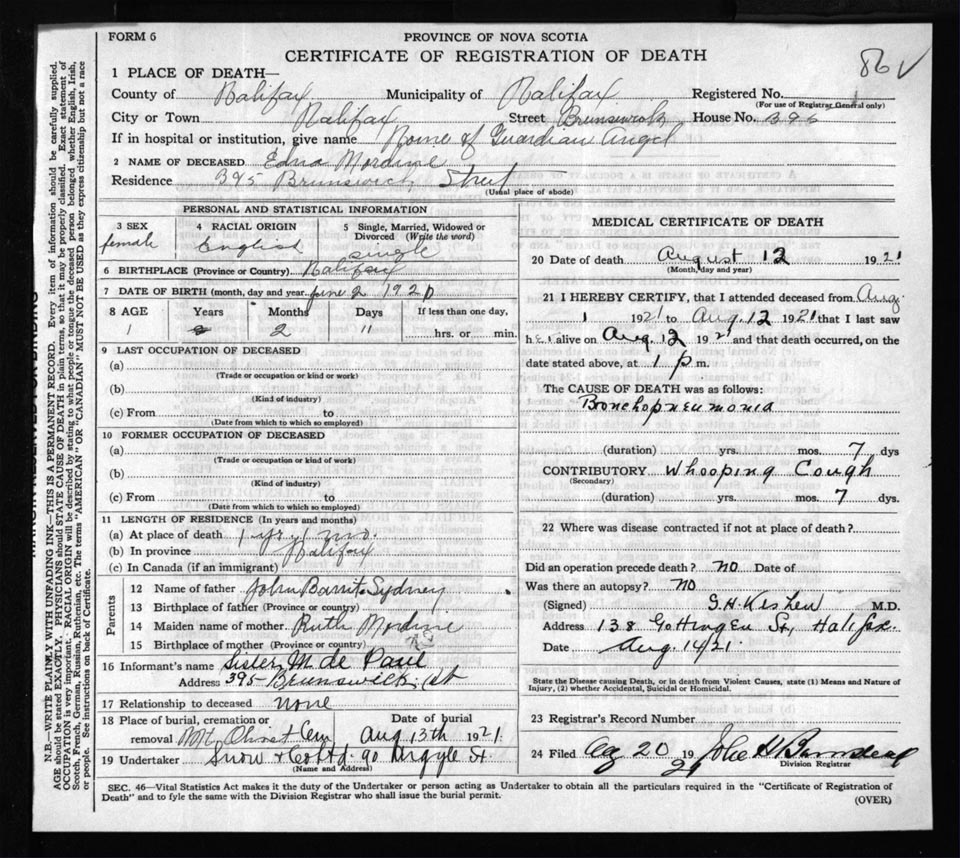 FORM 6
PROVINCE OF NOVA SCOTIA
CERTIFICATE OF REGISTRATION OF DEATH
86 ✓
1 PLACE OF DEATH—
County of Halifax Municipality of Halifax Registered No.
(For use of Registrar General only)
City or Town Halifax Street Brunswick House No. 395
If in hospital or institution, give name Home of Guardian Angel
2 NAME OF DECEASED Edna Mordine
Residence 395 Brunswick Street
(Usual place of abode)
PERSONAL AND STATISTICAL INFORMATION
3 SEX female
4 RACIAL ORIGIN English
5 Single, Married, Widowed or Divorced (Write the word) single
6 BIRTHPLACE (Province or Country) Halifax
7 DATE OF BIRTH (month, day and year June 2 1920
8 AGE Years Months Days If less than one day,
1 2 11 hrs. or min.
9 LAST OCCUPATION OF DECEASED
(a)
(Trade or occupation or kind or work)
(b)
(Kind of industry)
(c) From to
(Date from which to which so employed)
10 FORMER OCCUPATION OF DECEASED
(a)
(Trade or occupation or kind of work)
(b)
(Kind of industry)
(c) From to
(Date from which to which so employed)
11 LENGTH OF RESIDENCE (In years and months)
(a) At place of death 1 yr 1 mo.
(b) In province Halifax
(c) In Canada (if an immigrant)
Parents
12 Name of father John Sydney
13 Birthplace of father (Province or country)
14 Maiden name of mother Ruth Mordine
15 Birthplace of mother (Province or Country) NS
16 Informant's name Sister M. de Paul
Address 395 Brunswick St
17 Relationship to deceased none
18 Place of burial, cremation or removal Mt Olivet Cem
Date of burial Aug 13th 1921
19 Undertaker Snow & Co Ltd. 90 Argyle St.
(Name and Address)
MEDICAL CERTIFICATE OF DEATH
20 Date of death August 12 1921
(Month, day and year)
21 I HEREBY CERTIFY, that I attended deceased from Aug
1 1921 to Aug. 12 1921 that I last saw
her alive on Aug. 12 1921 and that death occurred, on the
date stated above, at 1 p m.
The CAUSE OF DEATH was as follows:
Bronchopneumonia
(duration) yrs. mos. 7 dys
CONTRIBUTORY Whooping Cough
(Secondary)
(duration) yrs. mos. 7 dys.
22 Where was disease contracted if not at place of death?
Did an operation precede death? NO Date of
Was there an autopsy? NO
(Signed) G. H. M.D.
Address 138 Gottingen St, Halifax
Date Aug. 14/21
State the Disease causing Death, or in death from Violent Causes, state (1) Means and Nature of
Injury, (2) whether Accidental, Suicidal or Homicidal.
23 Registrar's Record Number
24 Filed Ag 20 1921
Division Registrar
SEC. 46—Vital Statistics Act makes it the duty of the Undertaker or person acting as Undertaker to obtain all the particulars required in the "Certificate of Registration of
Death" and to fyle the same with the Division Registrar who shall issue the burial permit.
(OVER)
MARGIN RESERVED FOR BINDING
N.B.—WRITE PLAINLY WITH UNFADING INK—THIS IS A PERMANENT RECORD. Every item of information should be carefully supplied.
AGE should be stated EXACTLY. PHYSICIANS should STATE CAUSE OF DEATH in plain terms, so that it may be properly classified. Exact statement of
OCCUPATION is very important. RACIAL ORIGIN will be described by stating to what people or tongue the deceased person belonged whether English, Irish,
Scotch, French, German, Russian, Ruthenian, etc. The terms "AMERICAN" OR "CANADIAN" MUST NOT BE USED as they express citizenship but not a race
or people. See instructions on back of Certificate.